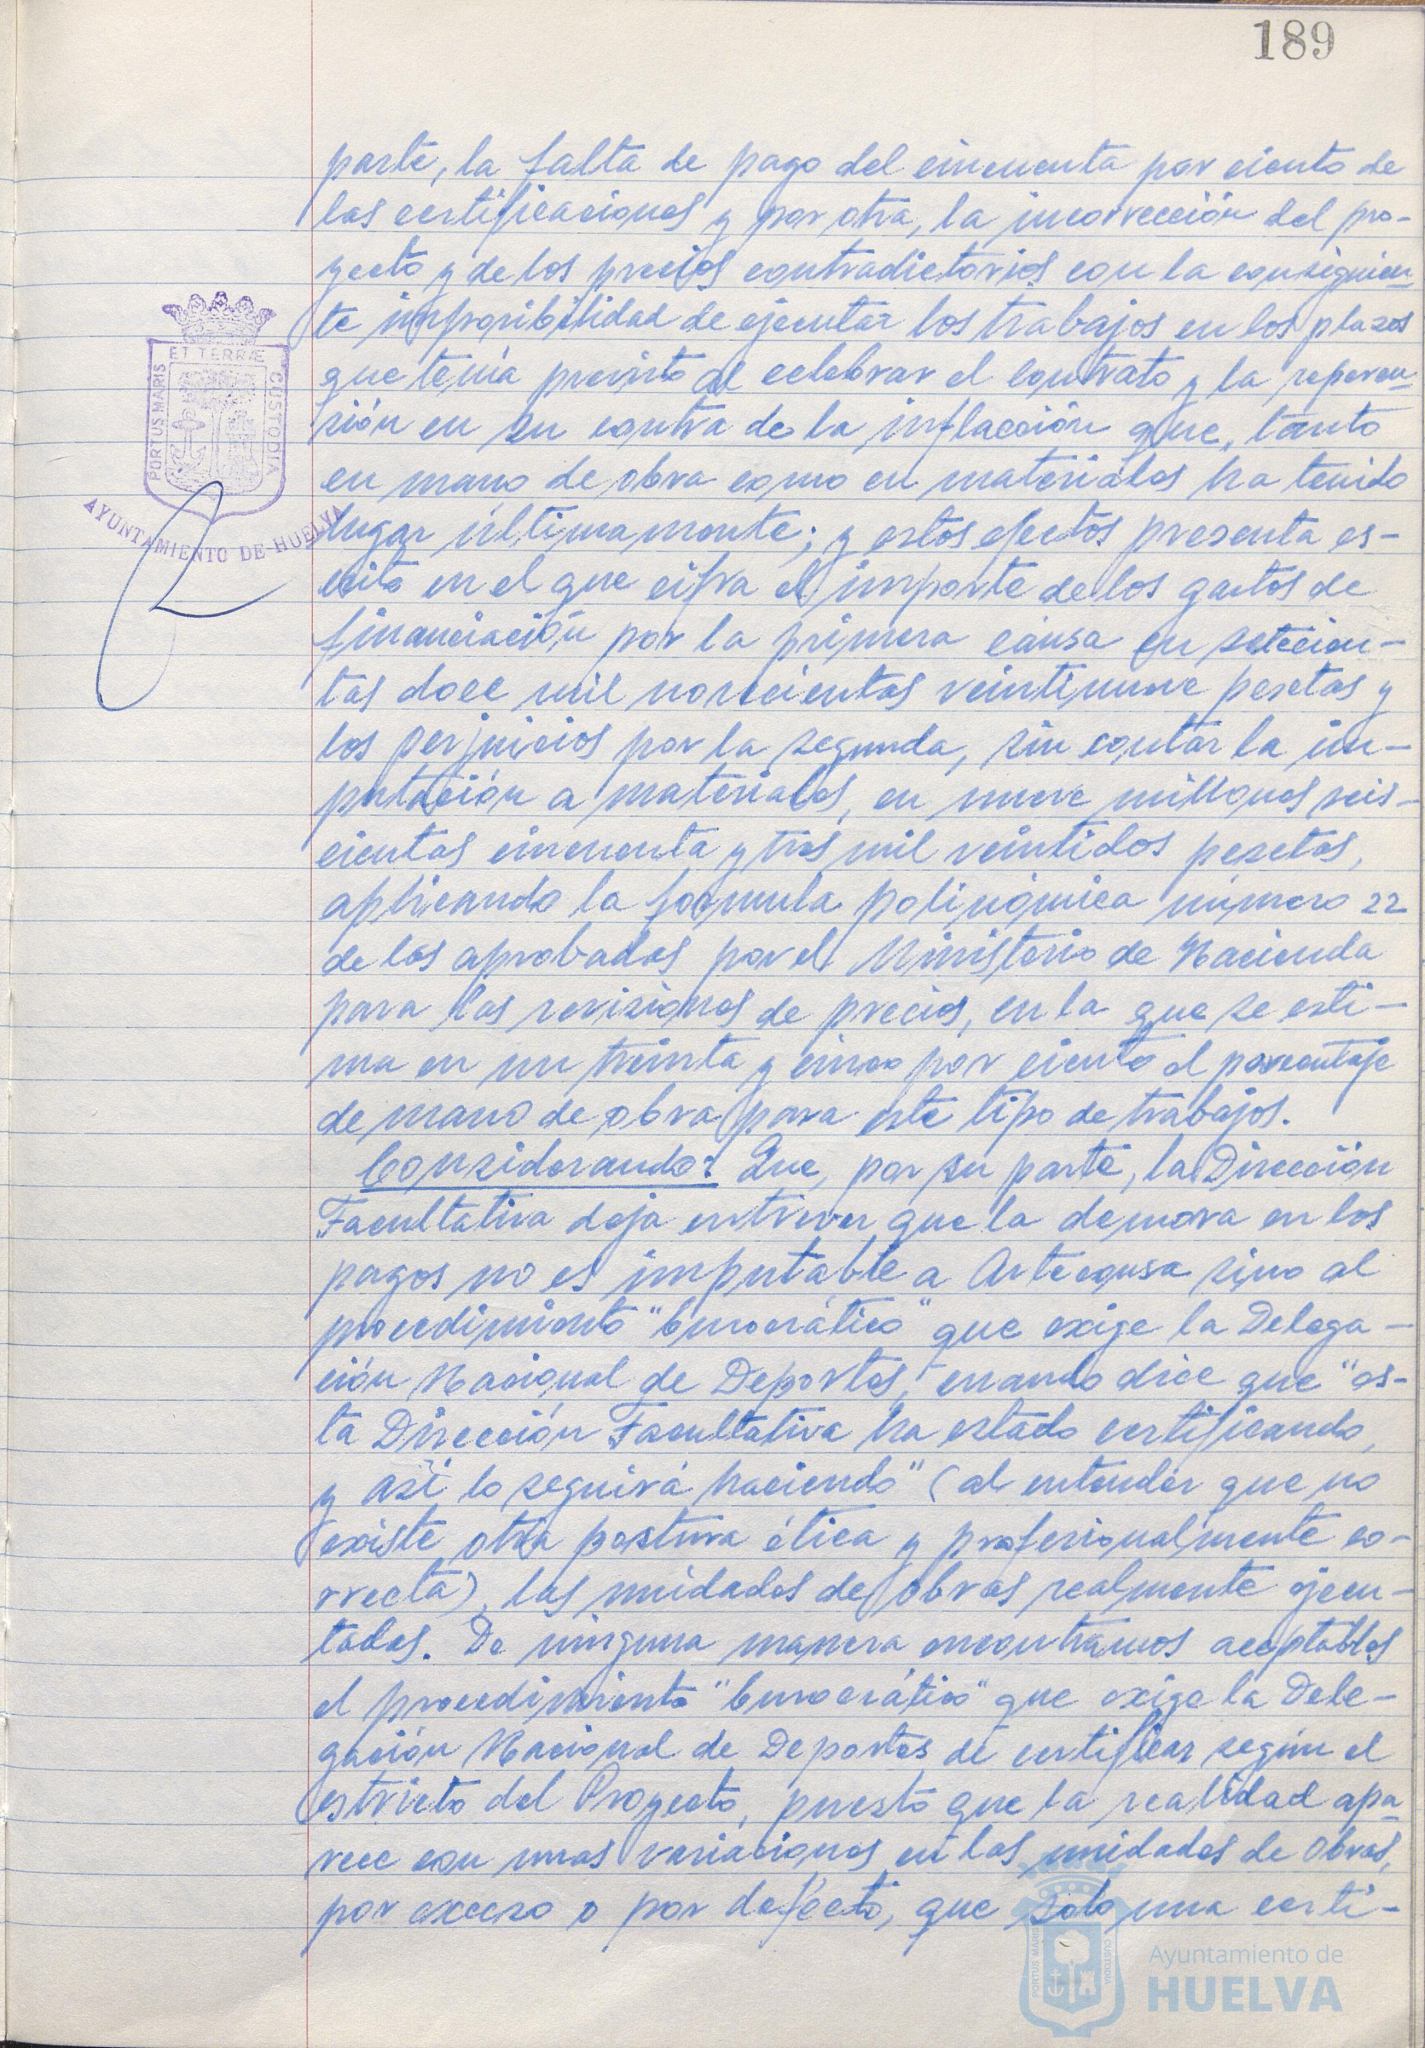 189
parte, la falta de pago del cincuenta por ciento de
las certificaciones y por otra, la incorrección del pro-
yecto y de los precios contradictorios con la consiguien-
te imposibilidad de ejecutar los trabajos en los plazos
que tenía previsto al celebrar el contrato y la repercu-
sión en su contra de la inflacción que, tanto
en mano de obra como en materiales ha tenido
lugar últimamente; y estos efectos presenta es-
crito en el que cifra el importe de los gastos de
financiación por la primera causa en setecien-
tas doce mil novecientas veintinueve pesetas y
los perjuicios por la segunda, sin contar la im-
putación a materiales, en nueve millones seis-
cientas cincuenta y tres mil veintidos pesetas,
aplicando la fórmula polinómica número 22
de las aprobadas por el Ministerio de Hacienda
para las revisiones de precios, en la que se esti-
ma en un treinta y cinco por ciento el porcentaje
de mano de obra para este tipo de trabajos.
Considerando: Que, por su parte, la Dirección
Facultativa deja entrever que la demora en los
pagos no es imputable a Arteconsa sino al
procedimiento "burocrático" que exige la Delega-
ción Nacional de Deportes, cuando dice que "es-
ta Dirección Facultativa ha estado certificando,
y así lo seguirá haciendo" (al entender que no
existe otra postura ética y profesionalmente co-
rrecta), las unidades de obras realmente ejecu-
tadas. De ninguna manera encontramos aceptables
el procedimiento "burocrático" que exige la Dele-
gación Nacional de Deportes de certificar según el
estricto del Proyecto, puesto que la realidad apa-
rece con unas variaciones en las unidades de obras,
por exceso o por defecto, que solo una certi-
PORTUS MARIS ET TERRÆ CUSTODIA
AYUNTAMIENTO DE HUELVA
PORTUS MARIS CUSTODIA
Ayuntamiento de
HUELVA